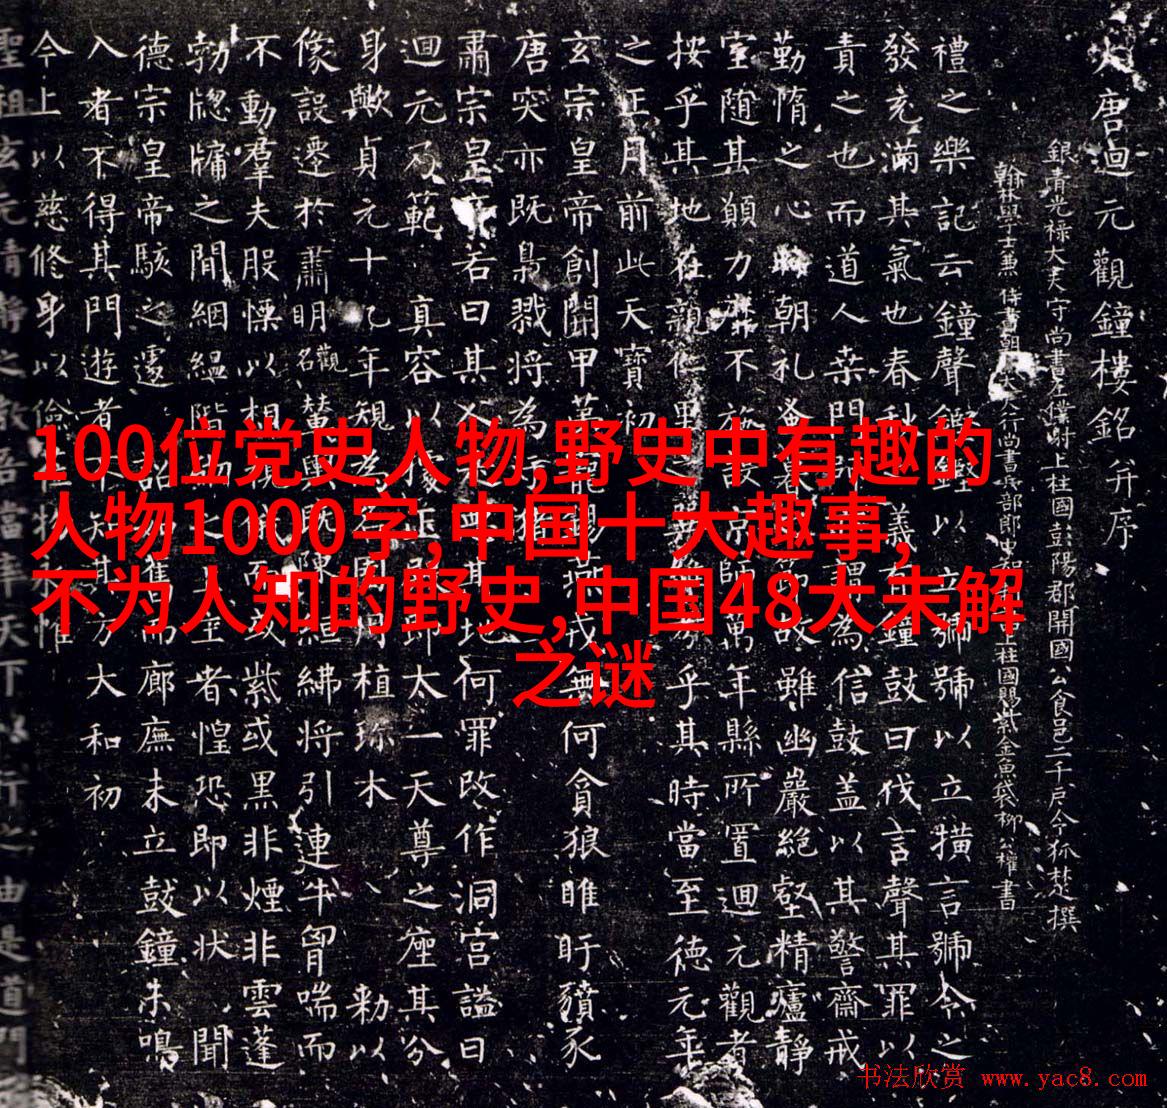 大唐迴元觀鐘樓銘并序
銀青光祿大夫守尚書左僕射上柱國彭陽郡開國公食邑二千戶令狐楚撰
翰林學士兼侍書朝
行尚書兵部郎
柱國賜紫金魚袋柳公權書
禮之樂記云鐘聲
號號以立橫言號令之
發充滿其氣也春秋
義
鐘鼓曰伐言聲其罪以
責之也而道人桑門
謂為信鼓蓋以其警齋戒
勤惰之心時朝礼
雖幽巖絕壑精廬靜
室隨其願力靡不
京師萬年縣所置迴元觀者
按乎其地在親仁里之
乎其時當至德元年
之正月前此天寶初
玄宗皇帝創開甲
戎無何貪狼睢盱豶豕
唐突亦既梟戮將為
肅宗皇帝若曰其
其地何罪改作洞宮謚曰
迴元乃範真容以
太一天尊之座其分
身歟貞元十九年規為
植琼木敕以
像設遷於肅明觀名
紼將引連牛胷喘而
不動羣夫股慄以相
紫或黑非煙非雲蓬
勃牕牖之間綑緼階
主者惶恐即以狀聞
德宗皇帝駭之遽詔
廊廡未立鼓鐘未鳴
入者不得其門遊者不知其方大和初
今上以慈修身以儉
惟
聖祖玄元清靜之教吾當率天下以行之由是道門
100位党史人物,野史中有趣的
人物1000字,中国十大趣事,
不为人知的野史,中国48大未解
之谜
书法欣赏 www.yac8.com